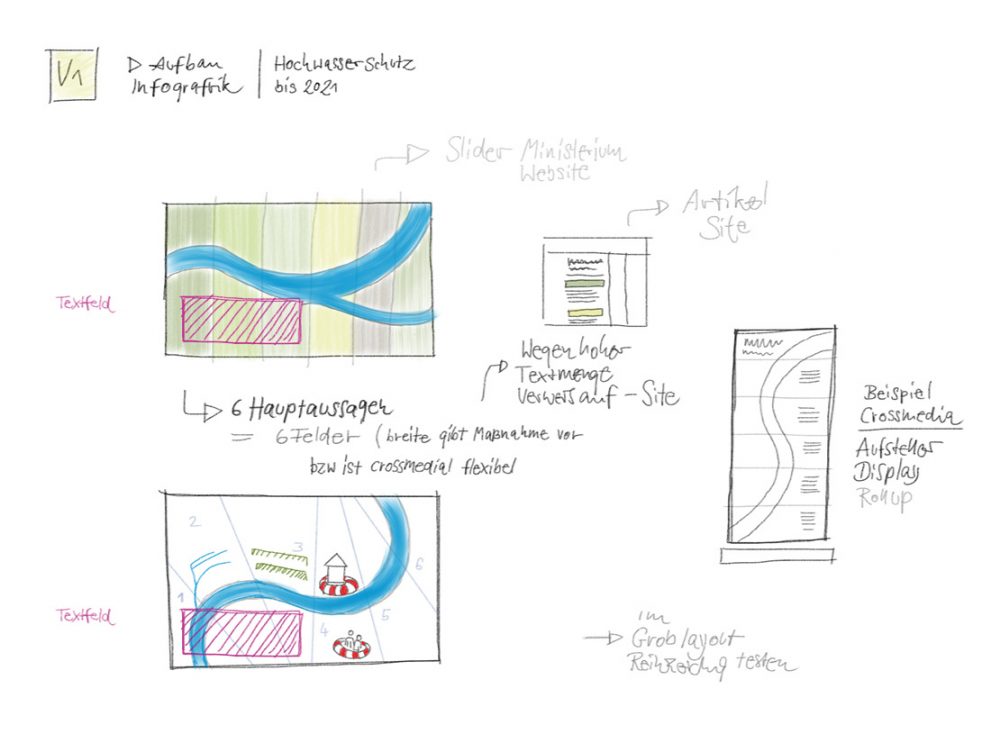 V1
▷ Aufbau
Infografik
Hochwasserschutz
bis 2021
Slider Ministerium
Website
Artikel
Site
Textfeld
Wegen hoher
Textmenge
Verweis auf - Site
6 Hauptaussagen
= 6 Felder (breite gibt Maßnahme vor
bzw ist crossmedial flexibel
Beispiel
Crossmedia
Aufsteller
Display
Rollup
2
3
6
1
4
5
Textfeld
im
Groblayout
testen